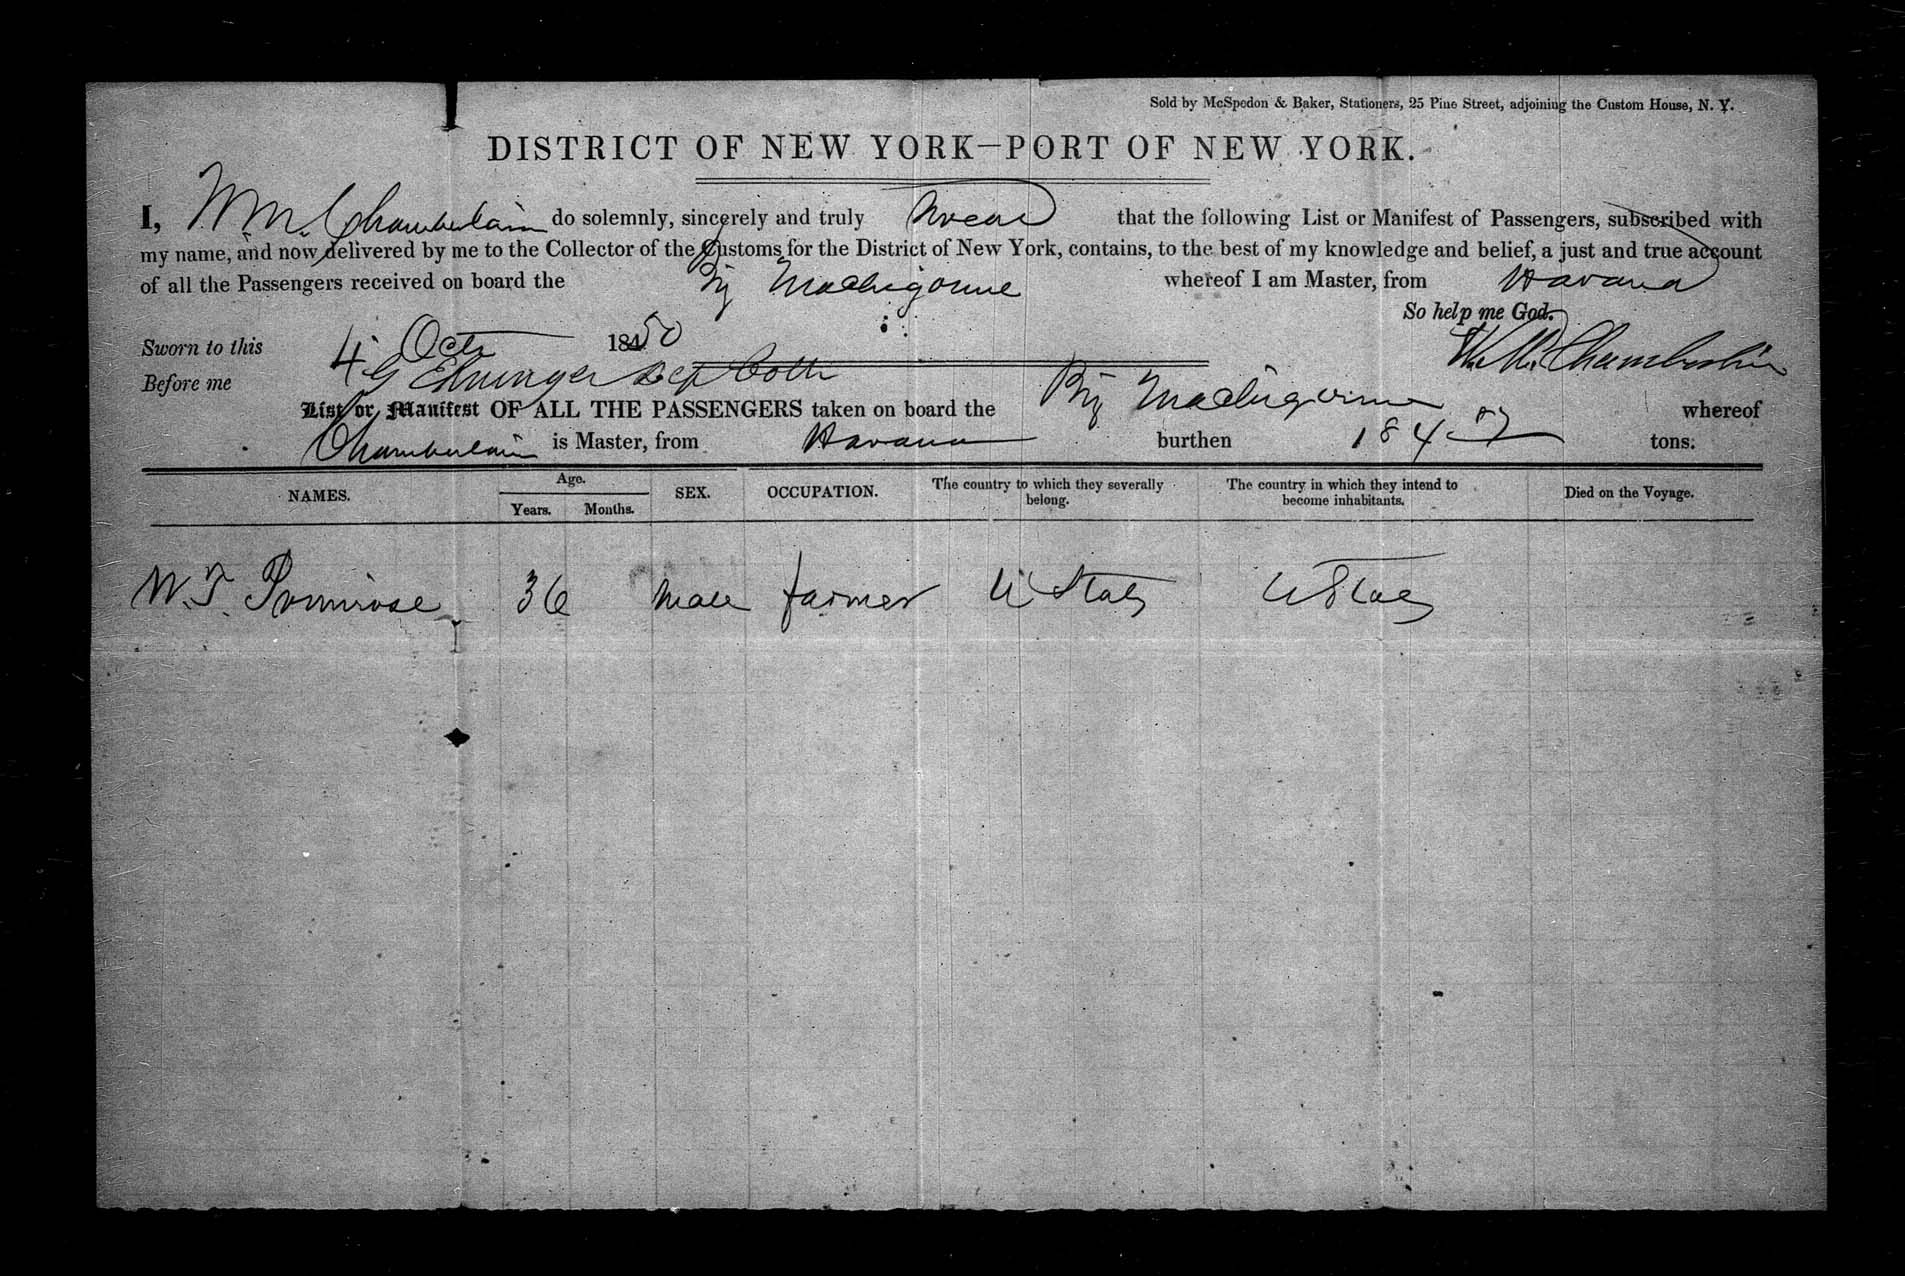 Sold by McSpedon & Baker, Stationers, 25 Pine Street, adjoining the Custom House, N. Y.
DISTRICT OF NEW YORK—PORT OF NEW YORK.
I, Wm. Chamberlain do solemnly, sincerely and truly swear that the following List or Manifest of Passengers, subscribed with
my name, and now delivered by me to the Collector of the Customs for the District of New York, contains, to the best of my knowledge and belief, a just and true account
of all the Passengers received on board the Brig Machigonne whereof I am Master, from Havana
So help me God.
Sworn to this 4 Octr 1850
W. M. Chamberlain
Before me G Ehninger Dep Coll
List or Manifest OF ALL THE PASSENGERS taken on board the Brig Machigonne whereof
Chamberlain is Master, from Havana burthen 184 tons.
NAMES. Age. Years. Months. SEX. OCCUPATION. The country to which they severally belong. The country in which they intend to become inhabitants. Died on the Voyage.
W. T. Primrose 36 Male farmer U States U States